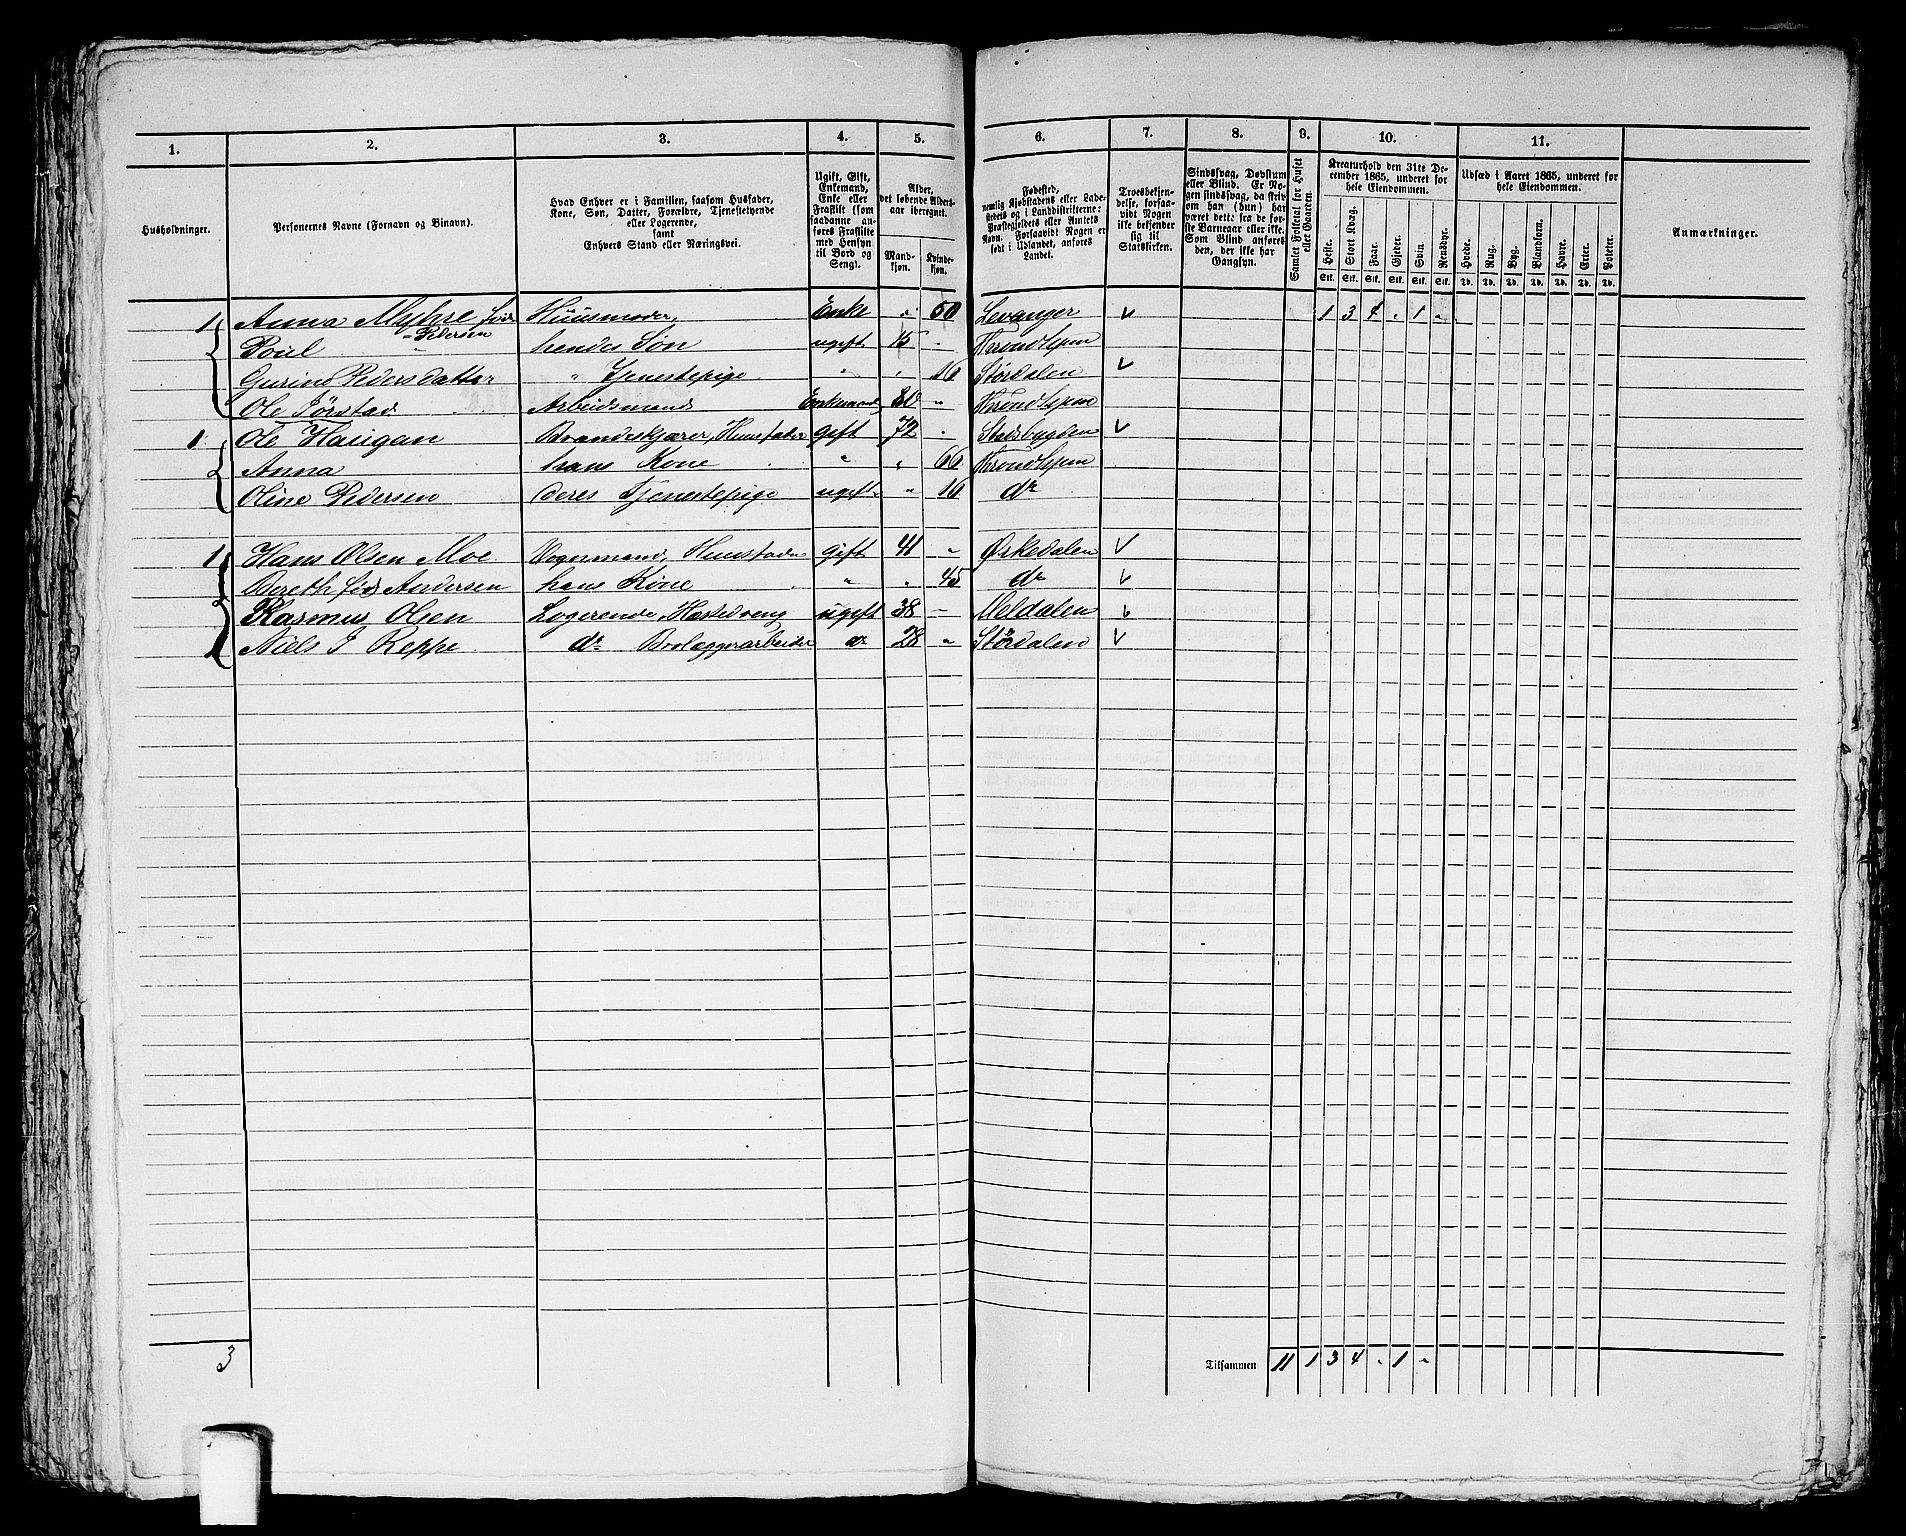 1. 2. 3. 4. 5. 6. 7. 8. 9. 10. 11.
Husholdninger.
Personernes Navne (Fornavn og Binavn).
Hvad Enhver er i Familien, saasom Husfader,
Kone, Søn, Datter, Forældre, Tjenestetyende
eller Logerende,
samt
Enhvers Stand eller Næringsvei.
Ugift, Gift,
Enkemand,
Enke eller
Fraskilt (som
saadanne an-
føres Fraskilte
med Hensyn
til Bord og
Seng).
Alder,
det løbende Alders-
aar iberegnet.
Mand-
kjøn.
Kvinde-
kjøn.
Fødested,
nemlig Kjøbstadens eller Lade-
stedets og i Landdistrikterne:
Præstegjeldets eller Amtets
Navn. Forsaavidt Nogen er
født i Udlandet, anføres
Landet.
Troesbekjen-
delse, forsaa-
vidt Nogen
ikke bekjender
sig til
Statskirken.
Sindssvag, Døvstum
eller Blind. Er No-
gen sindssvag, da skriv
om han (hun) har
været dett: fra de før-
ste Barneaar eller ikke.
Som Blind anføres
den, der ikke har
Gangsyn.
Samlet Folketal for Huset
eller Gaarden.
Kreaturhold den 31te De-
cember 1865, underet for
hele Eiendommen.
Heste. Stort Kvæg. Faar. Gjeder. Svin. Rensdyr.
Stk. Stk. Stk. Stk. Stk. Stk.
Udsæd i Aaret 1865, underet for
hele Eiendommen.
Hvede. Rug. Byg. Blandkorn. Havre. Erter. Poteter.
Td. Td. Td. Td. Td. Td. Td.
Anmærkninger.
1 Anna Myhre født Pedersen Huusmoder, Enke " 50 Levanger 1 3 4 " 1 "
Poul " hendes Søn ugift 15 " Throndhjem
Gurine Pedersdatter " Tjenestepige " " 16 Størdalen
Ole Førstad Arbeidsmand Enkemand 80 " Throndhjem
1 Ole Haugan Brændeskjærer, Huusfader gift 72 " Stadsbygden
Anna hans Kone " " 66 Throndhjem
Oline Pedersen deres Tjenestepige ugift " 16 do
1 Hans Olsen Moe Vognmand, Huusfader gift 41 " Ørkedalen
Bereth født Andersen hans Kone " " 45 do
Rasmus Olsen Logerende, Hestedreng ugift 38 – Meldalen
Niels J Reppe do Brolæggerarbeider do 28 " Størdalen
3
Tilsammen 11 1 3 4 " 1 "